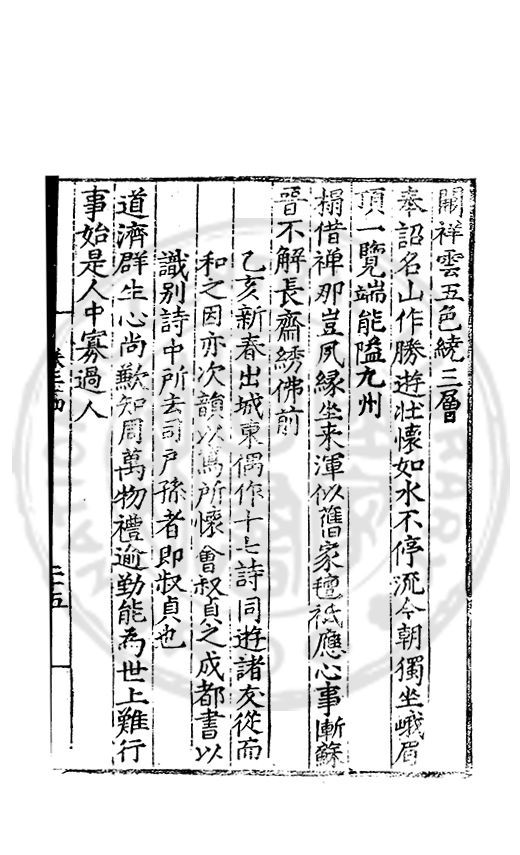 關祥雲五色繞三層
奉詔名山作勝遊壯懷如水不停流今朝獨坐峨眉
頂一覽端能隘九州
榻借禪那豈夙緣坐来渾似舊家氊祗應心事慚蘇
晉不解長齋綉佛前
乙亥新春出城東偶作十七詩同遊諸友從而
和之因亦次韻以寫所懷會叔貞之成都書以
識别詩中所去司戶孫者即叔貞也
道濟群生心尚歉知周萬物禮逾勤能為世上難行
事始是人中寡過人
卷三十四
二十五